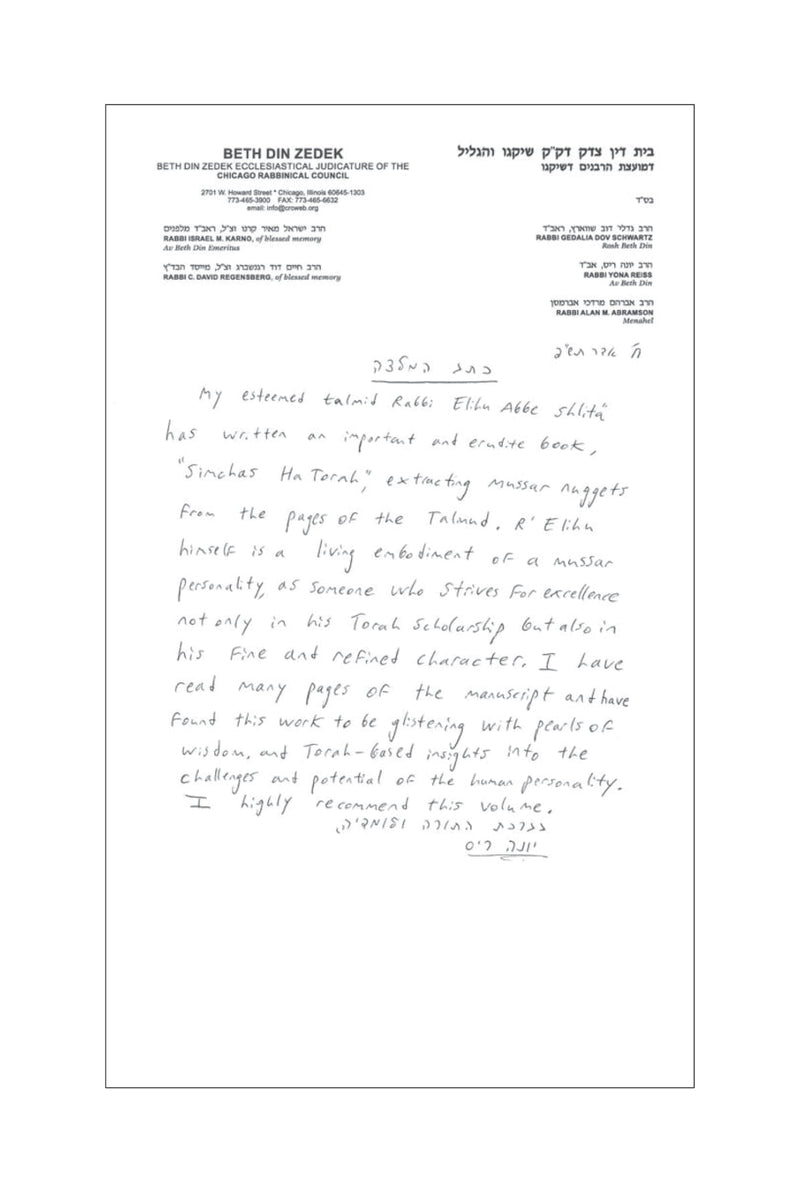 BETH DIN ZEDEK
BETH DIN ZEDEK ECCLESIASTICAL JUDICATURE OF THE
CHICAGO RABBINICAL COUNCIL
2701 W. Howard Street * Chicago, Illinois 60645-1303
773-465-3900 FAX: 773-465-6632
email: info@crcweb.org
בית דין צדק דק"ק שיקגו והגליל
דמועצת הרבנים דשיקגו
בס"ד
הרב ישראל מאיר קרנו זצ"ל, ראב"ד מלפנים
RABBI ISRAEL M. KARNO, of blessed memory
Av Beth Din Emeritus
הרב חיים דוד רגנשברג זצ"ל, מייסד הבד"ץ
RABBI C. DAVID REGENSBERG, of blessed memory
הרב גדלי' דוב שווארץ, ראב"ד
RABBI GEDALIA DOV SCHWARTZ
Rosh Beth Din
הרב יונה ריס, אב"ד
RABBI YONA REISS
Av Beth Din
הרב אברהם מרדכי אברמסן
RABBI ALAN M. ABRAMSON
Menahel
ח' אדר תש"פ
כתב המלצה
My esteemed talmid Rabbi Elihu Abbe shlita"
has written an important and erudite book,
"Simchas HaTorah," extracting mussar nuggets
from the pages of the Talmud. R' Elihu
himself is a living embodiment of a mussar
personality, as someone who strives for excellence
not only in his Torah scholarship but also in
his fine and refined character. I have
read many pages of the manuscript and have
found this work to be glistening with pearls of
wisdom, and Torah-based insights into the
challenges and potential of the human personality.
I highly recommend this volume.
בברכת התורה ולומדיה,
יונה ריס